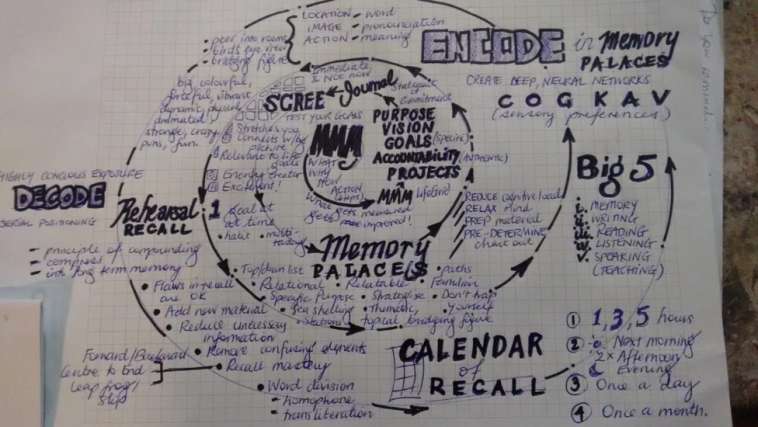 LOCATION - word
IMAGE - pronounciation
ACTION - meaning
- peer into room
- birds eye view
- bridging figure
ENCODE in Memory
PALACES
CREATE DEEP, NEURAL NETWORKS
COGKAV
(sensory preferences)
big colourful,
animated,
strange, crazy
puns, fun.
immediate
& not now
SCREE Journal
Statement
Commitment
TEST YOUR GOALS
Stretches you
Connects w/ big
picture
Relevant to life
goals
Energy creator
Excellent!
MMM
WHAT
WHY
HOW
ACTION
(STEPS)
What gets measured
gets improved!
PURPOSE
VISION
GOALS (SPECIFIC)
ACCOUNTABILITY
PROJECTS
MMM Lifetime
HIGHLY CONCIOUS EXPOSURE
DECODE
SERIAL POSITIONING
Rehearsal
RECALL
1
Goal at
at time
- habit
- multi-
tasking
- principle of compounding
- compress
- into long term memory
REDUCE cognitive load
RELAX mind
PREP material
PRE-DETERMINE
chart out
Memory
PALACES
Big 5
i. MEMORY
ii. WRITING
iii. READING
iv. LISTENING
v. SPEAKING
(TEACHING)
• Top/down list
• paths
• Relational
• Relatable
• Foundation
Specific Purpose
• Strategise
• Don't trap
yourself
• Sea shelling
• Thematic,
topical
bridging figure
• Flaws in recall
are OK
• Add new material
• Reduce unnecessary
information
• Remove confusing elements
• Recall mastery
Forward/Backward
Centre to End
Leap frog/
Skip
• Word division
- homophone
- transliteration
CALENDAR
of
RECALL
1 1, 3, 5 hours
2 Next morning
2x Afternoon
Evening
3 Once a day
4 Once a month.